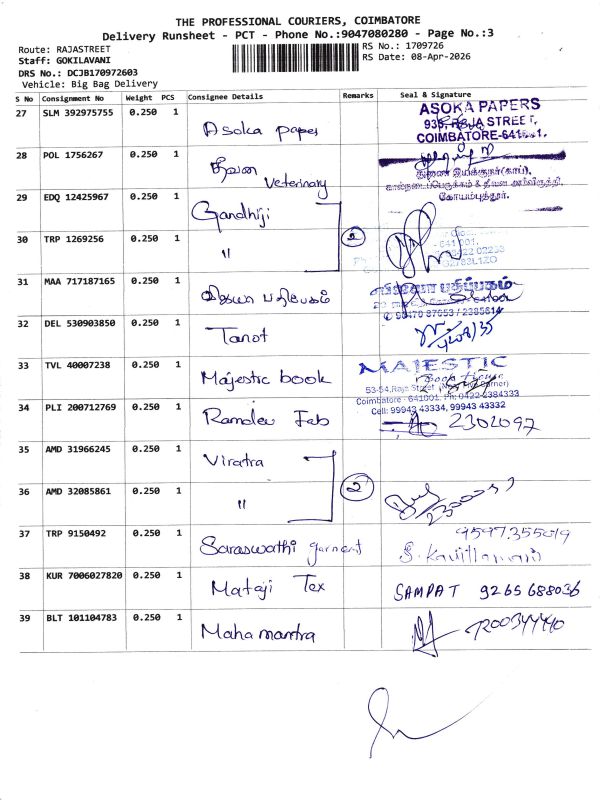 THE PROFESSIONAL COURIERS, COIMBATORE
Delivery Runsheet - PCT - Phone No.:9047080280 - Page No.:3
Route: RAJASTREET
Staff: GOKILAVANI
DRS No.: DCJB170972603
Vehicle: Big Bag Delivery
RS No.: 1709726
RS Date: 08-Apr-2026
S No Consignment No Weight PCS Consignee Details Remarks Seal & Signature
27 SLM 392975755 0.250 1 Asoka paper
ASOKA PAPERS
STREET,
COIMBATORE-641001.
28 POL 1756267 0.250 1 Veterinary
கோயம்புத்தூர்.
29 EDQ 12425967 0.250 1 Gandhiji
30 TRP 1269256 0.250 1 " 2
31 MAA 717187165 0.250 1 விஜயா பதிப்பகம்
விஜயா பதிப்பகம்
32 DEL 530903850 0.250 1 Tanot
33 TVL 40007238 0.250 1 Majestic book
MAJESTIC
Book House
Coimbatore - 641001. Ph: 0422-2384333
Cell: 99943 43334, 99943 43332
34 PLI 200712769 0.250 1 Ramdev Fab 2302097
35 AMD 31966245 0.250 1 Viratra
36 AMD 32085861 0.250 1 " 2
37 TRP 9150492 0.250 1 Saraswathi garment
9597355019
38 KUR 7006027820 0.250 1 Mataji Tex SAMPAT 9265688036
39 BLT 101104783 0.250 1 Maha mantra 7200344440